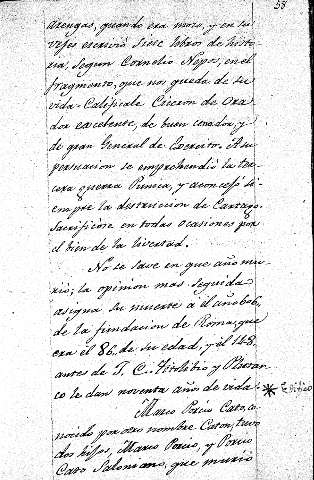 58
arengas, quando era moso, y en su
vejes escrivió siese libros de histo
ria, segun Cornelio Nepos, en el
fragmento, que nos queda de su
vida. Calificale Ciceron de Ora
dor excelente, de buen cenador, y
de gran General de Exercito. A su
persuacion se emprehendió la ter
cera guerra Punica, y aconcejó si
empre la destruccion de Cartago.
Sacrificose en todas ocasiones por
el bien de la libertad.
No se save en que año mu
rió; la opinion mas seguida
asigna su muerte a el año 606,
de la fundacion de Roma, que
era el 86, de su edad, y el 148.
antes de J. C. Titolibio y Plutar
co le dan noventa año de vida.
Marco Porcio Cato, co
nocido por otro nombre Caton, tuvo
dos hijos, Marco Porcio, y Porcio
Cato Saloniano, que murió